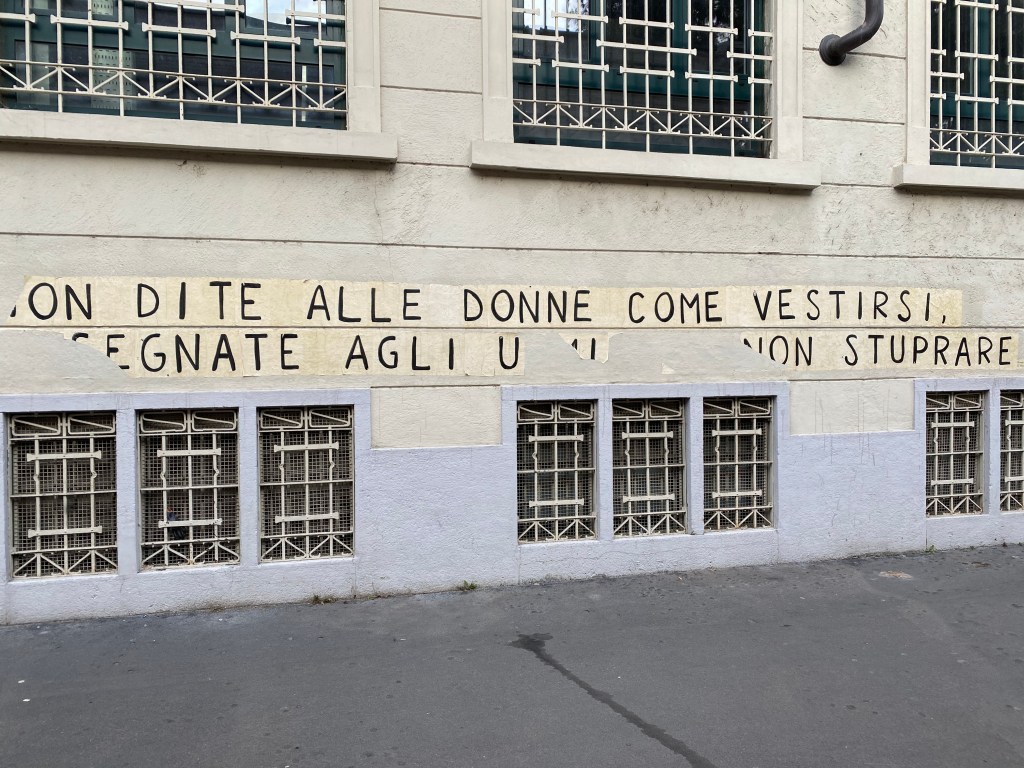 NON DITE ALLE DONNE COME VESTIRSI,
INSEGNATE AGLI UOMINI A NON STUPRARE